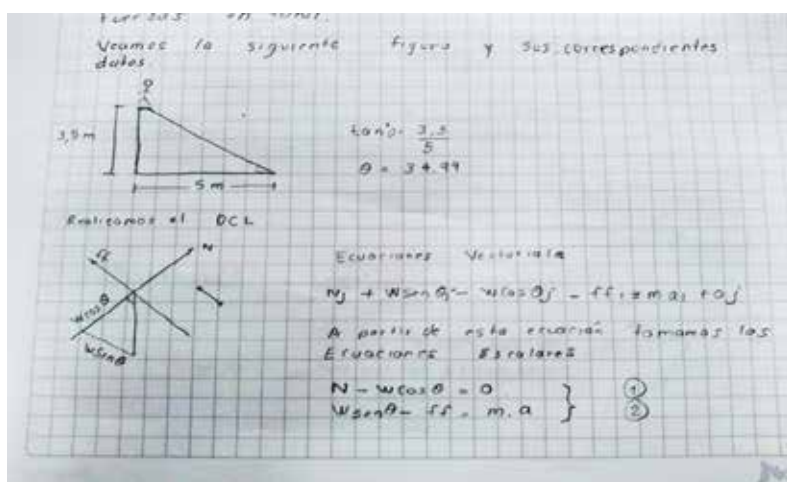 fuerzas en total.
Veamos la siguiente figura y sus correspondientes
datos
3,5 m
5 m
tan⁻¹θ = 3,5/5
θ = 34.99
Realizamos el DCL
N
ff
Wcosθ
Wsenθ
Ecuaciones Vectoriales
Nj + Wsenθi - Wcosθj - ffi = mai + 0j
A partir de esta ecuación tomamos las
Ecuaciones Escalares
N - Wcosθ = 0 } ①
Wsenθ - ff = m.a } ②